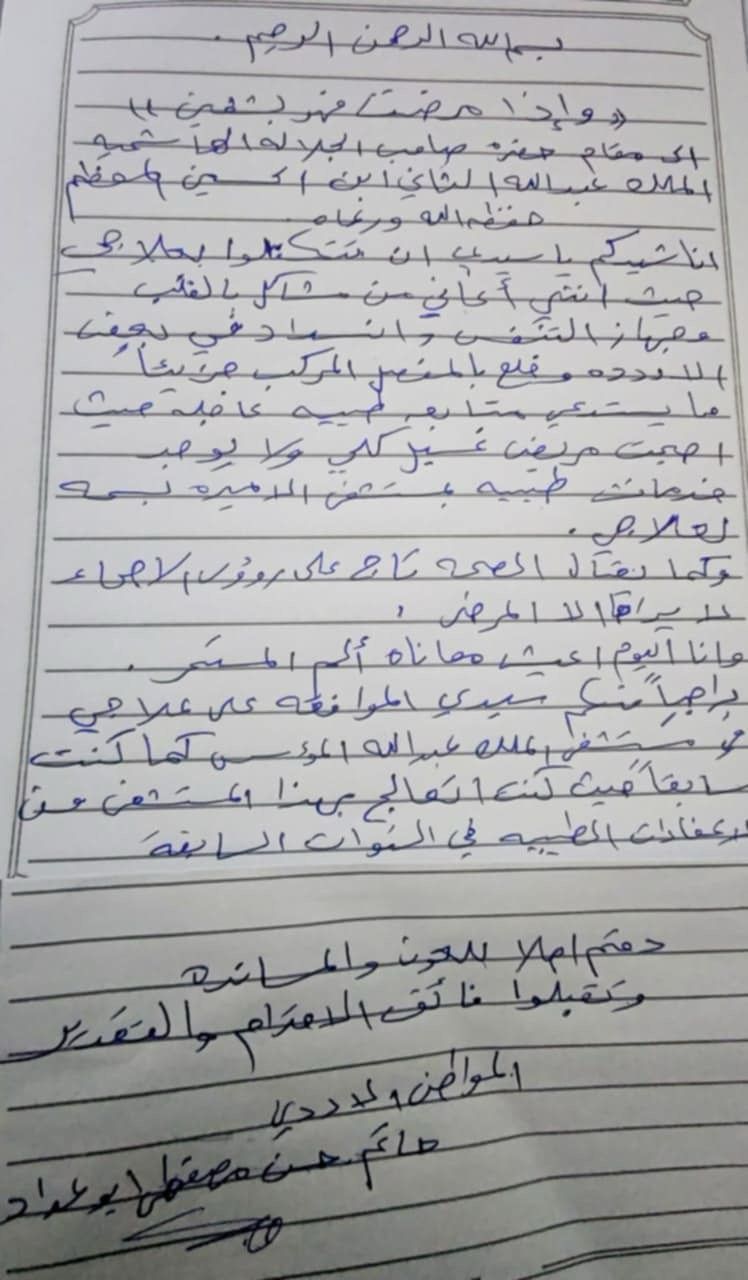 بسم الله الرحمن الرحيم .
(( وإذا مرضت فهو يشفين ))
الى مقام حضرة صاحب الجلالة الهاشمية
الملك عبدالله الثاني ابن الحسين المعظم
حفظه الله ورعاه
اناشدكم يا سيدي ان تتكفلوا بعلاجي
حيث انني أعاني من مشاكل بالقلب
وجهاز التنفس وانسداد في بعض
الاورده وخلع بالمفصل المركب جزئياً
ما يستدعي متابعه طبيه عاجله حيث
اصبحت مريض غسيل كلى ولا يوجد
خدمات طبيه بمستشفى الاميره بسمه
لعلاجي .
وكما يقال الصحه تاج على رؤوس الاصحاء
لا يراها الا المرضى .
وانا اليوم اعيش معاناه ألم المستمر .
راجياً منكم سيدي الموافقه على علاجي
في مستشفى الملك عبدالله المؤسس كما كنت
سابقاً حيث كنت اتعالج بهذا المستشفى من
اعفاءات الطبيه في السنوات السابقة
دمتم اهلا للعون والمسانده
وتقبلوا فائق الاحترام والتقدير
المواطن الاردني
حاتم حسن مصطفى ابو عواد